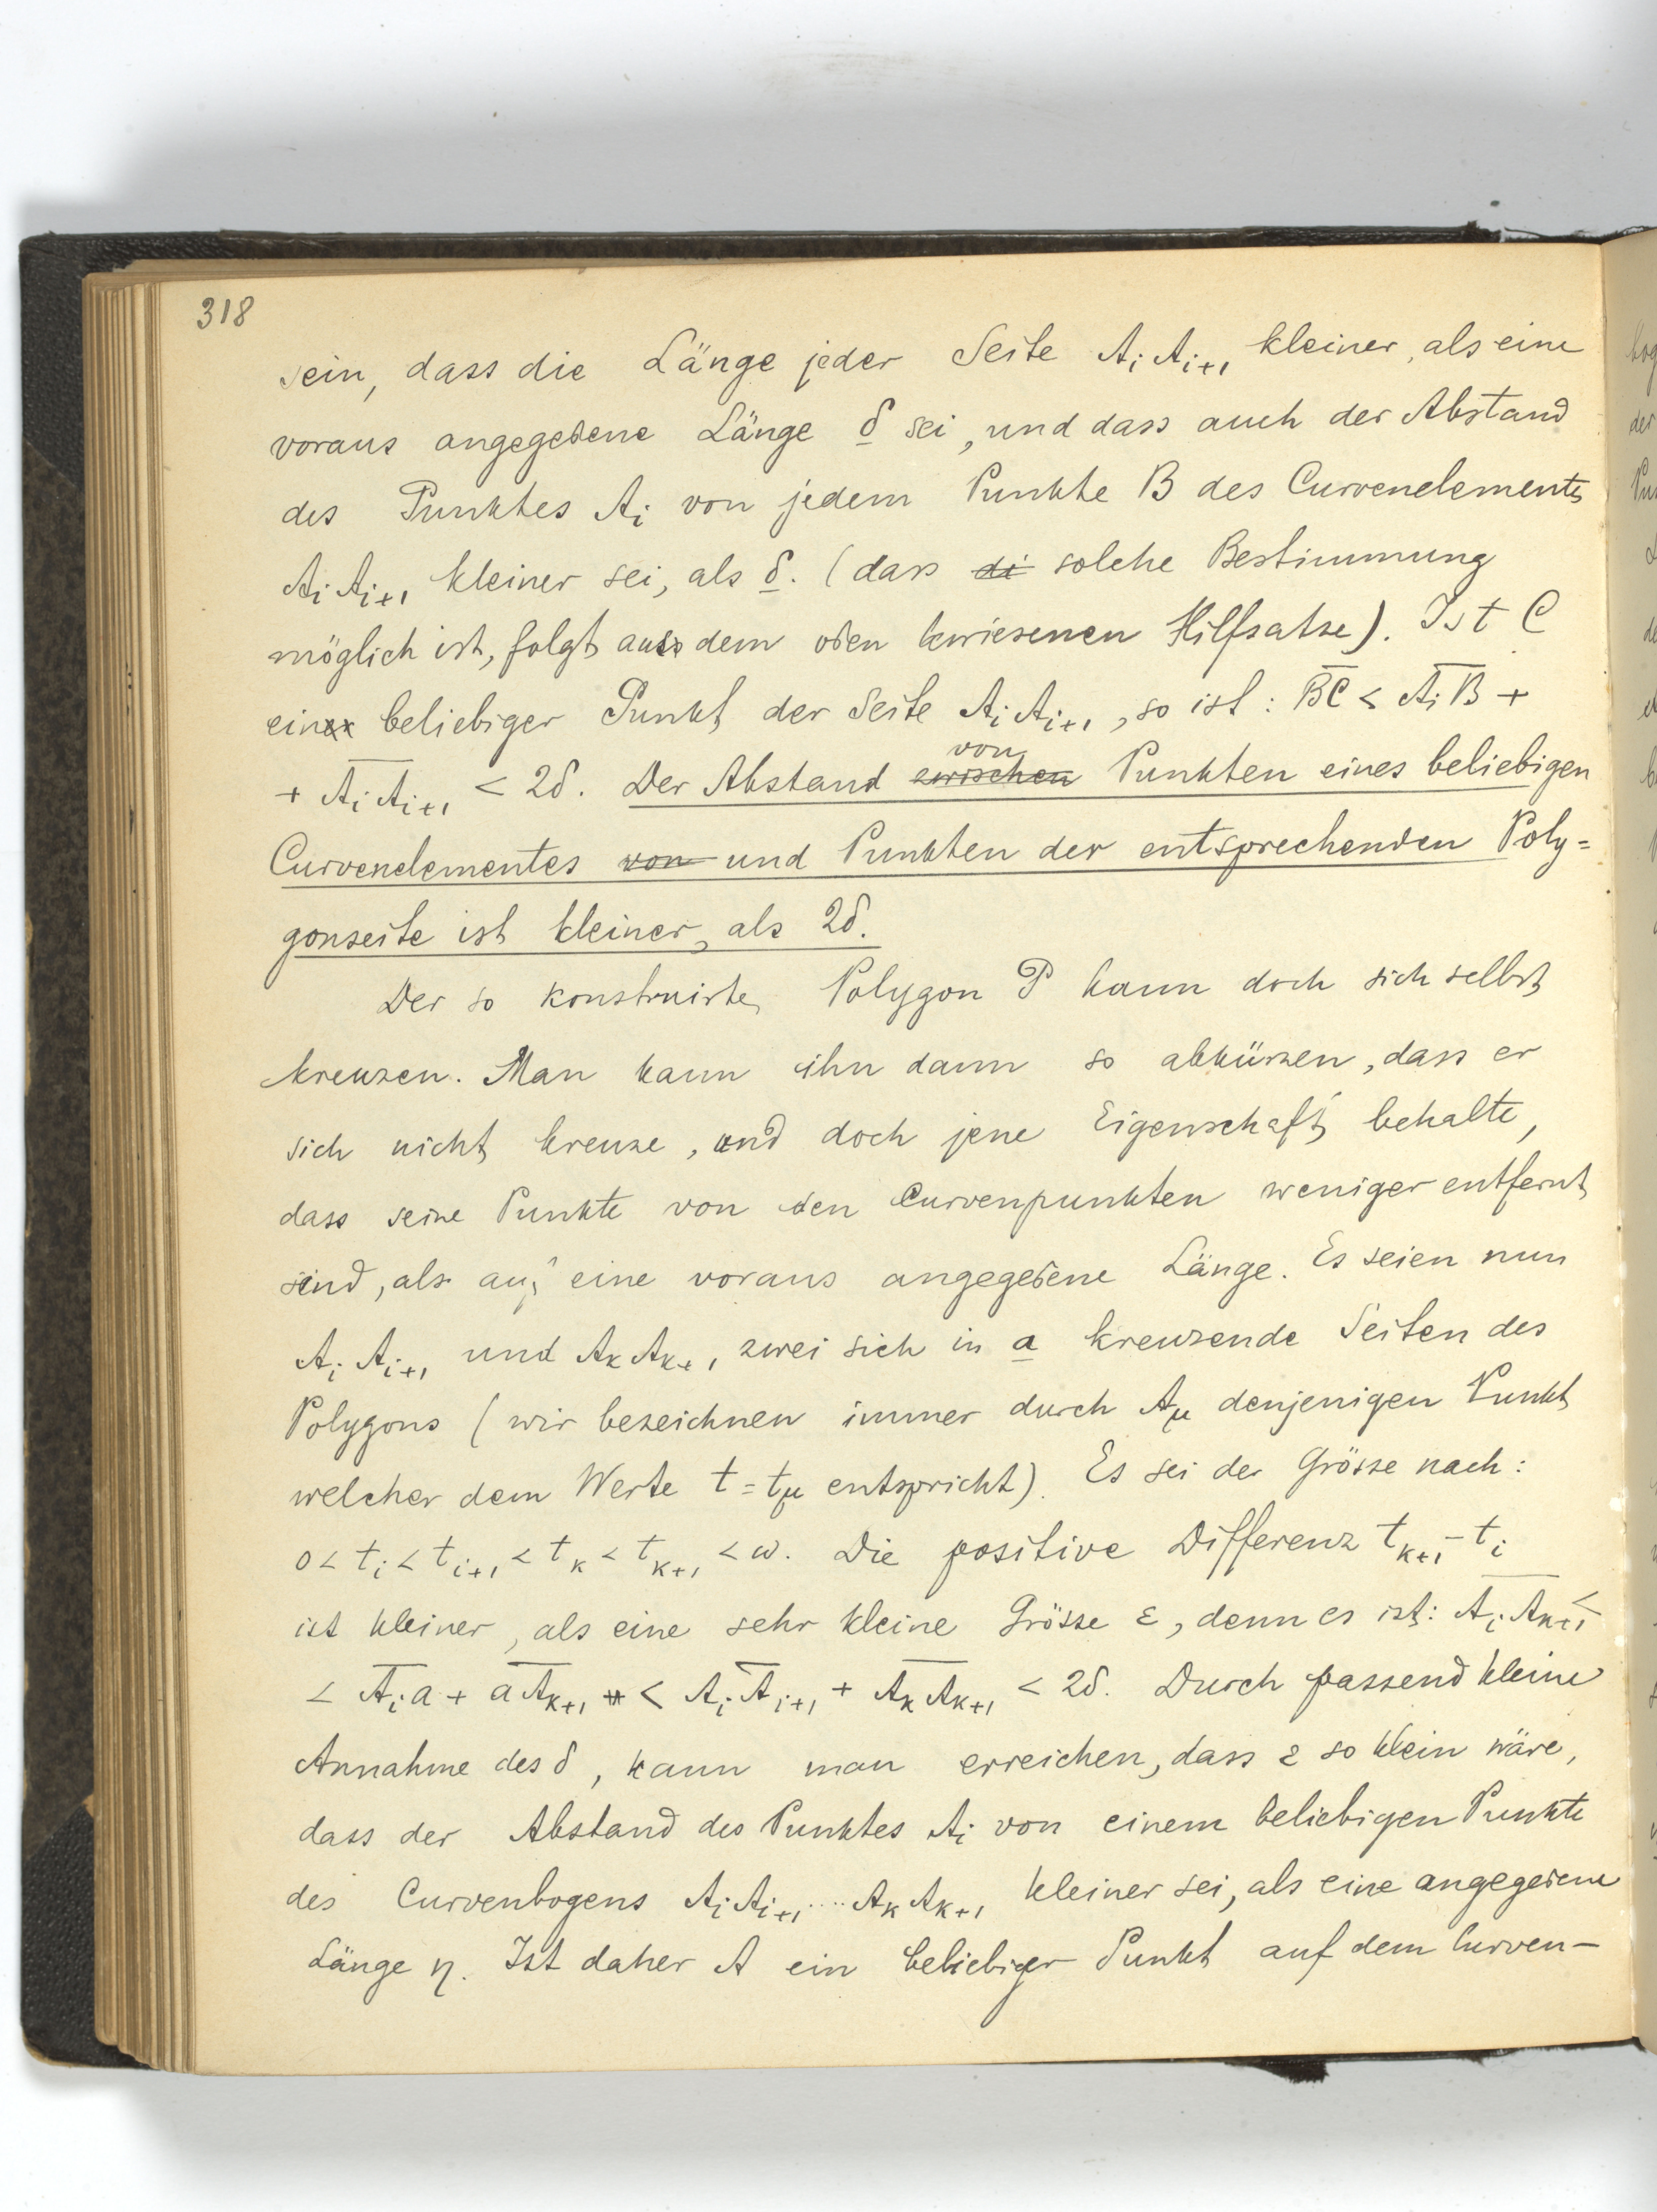 318
sein, dass die Länge jeder Seite AᵢAᵢ₊₁ kleiner, als eine
voraus angegebene Länge δ sei, und dass auch der Abstand
des Punktes Aᵢ von jedem Punkte B des Curvenelements
AᵢAᵢ₊₁ kleiner sei, als δ. (dass di solche Bestimmung
möglich ist, folgt aus dem oben bewiesenen Hilfsatze). Ist C
ein beliebiger Punkt der Seite AᵢAᵢ₊₁, so ist: B̅C̅ < A̅ᵢB̅ +
+ A̅ᵢA̅ᵢ₊₁ < 2δ. Der Abstand zwischen von Punkten eines beliebigen
Curvenelementes von und Punkten der entsprechenden Poly=
gonseite ist kleiner, als 2δ.
Der so konstruirte Polygon P kann doch sich selbst
kreuzen. Man kann ihn dann so abkürzen, dass er
sich nicht kreuze, und doch jene Eigenschaft behalte,
dass seine Punkte von den Curvenpunkten weniger entfernt
sind, als auf eine voraus angegebene Länge. Es seien nun
AᵢAᵢ₊₁ und AₖAₖ₊₁, zwei sich in a kreuzende Seiten des
Polygons (wir bezeichnen immer durch A_μ denjenigen Punkt
welcher dem Werte t = t_μ entspricht). Es sei der Grösse nach:
0 < tᵢ < tᵢ₊₁ < tₖ < tₖ₊₁ < ω. Die positive Differenz tₖ₊₁ - tᵢ
ist kleiner, als eine sehr kleine Grösse ε, denn es ist: A̅ᵢA̅ₖ₊₁ <
< A̅ᵢa̅ + a̅A̅ₖ₊₁ < A̅ᵢA̅ᵢ₊₁ + A̅ₖA̅ₖ₊₁ < 2δ. Durch passend kleine
Annahme des δ, kann man erreichen, dass ε so klein wäre,
dass der Abstand des Punktes Aᵢ von einem beliebigen Punkte
des Curvenbogens AᵢAᵢ₊₁....AₖAₖ₊₁ kleiner sei, als eine angegebene
Länge η. Ist daher A ein beliebiger Punkt auf dem Curven-